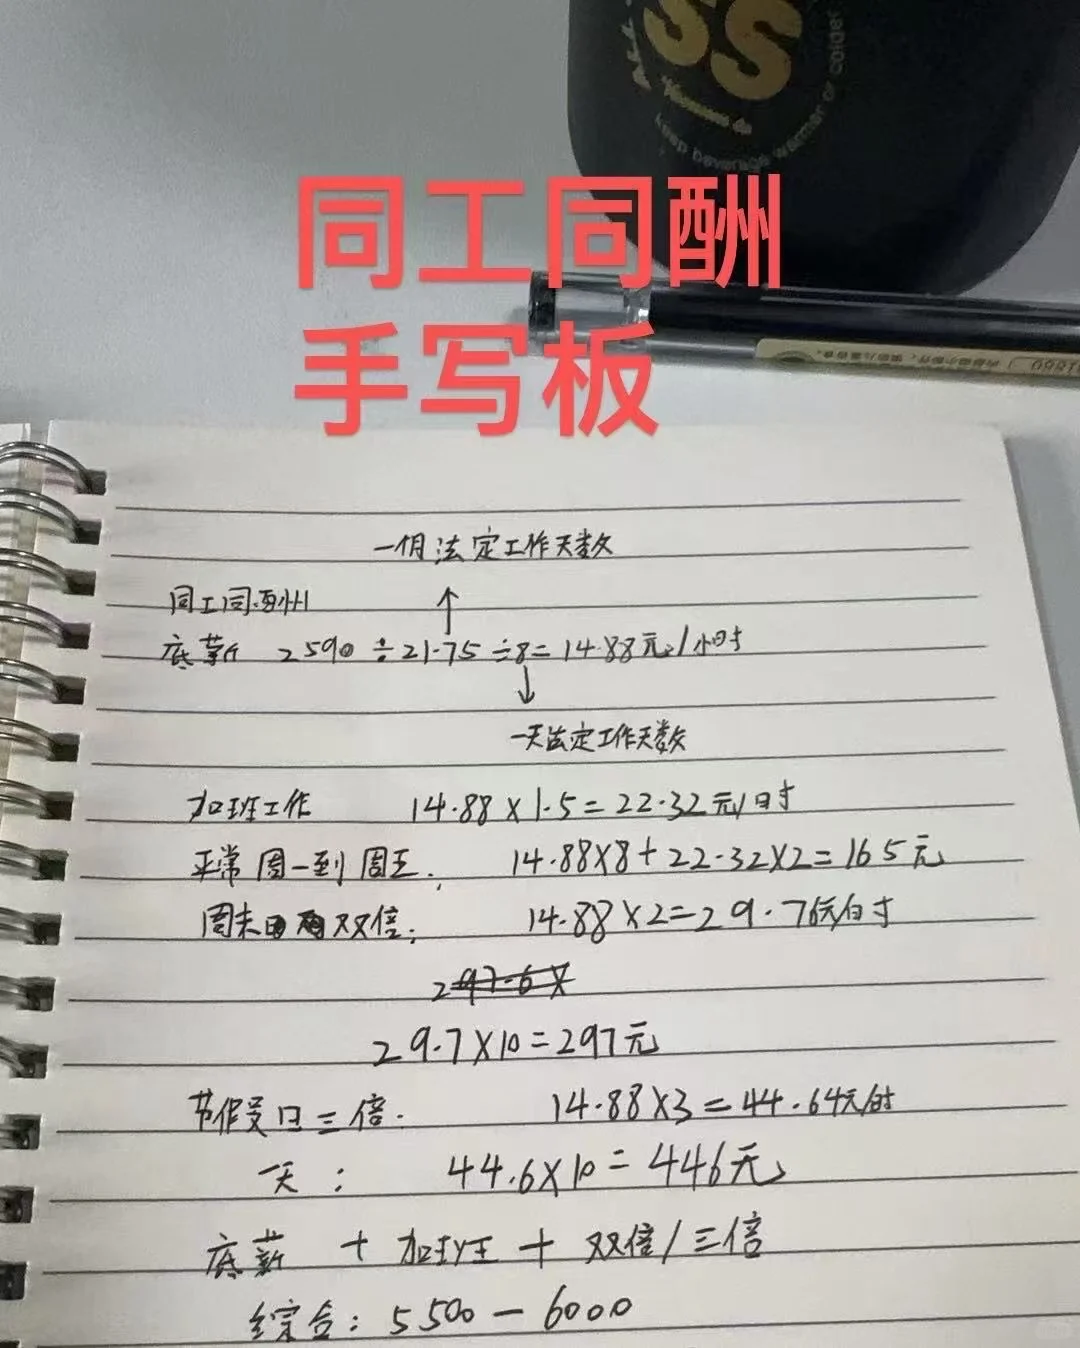 SS
keep beverage warmer or colder
同工同酬
手写板
一个月法定工作天数
同工同酬
底薪 2590÷21.75÷8=14.88元/小时
一天法定工作天数
加班工作 14.88×1.5=22.32元/时
正常周一到周五: 14.88×8+22.32×2=165元
周末 双倍: 14.88×2=29.76元/时
29.7×10=297元
节假日三倍: 14.88×3=44.64元/时
一天: 44.6×10=446元
底薪 + 加班 + 双倍/三倍
综合: 5500-6000